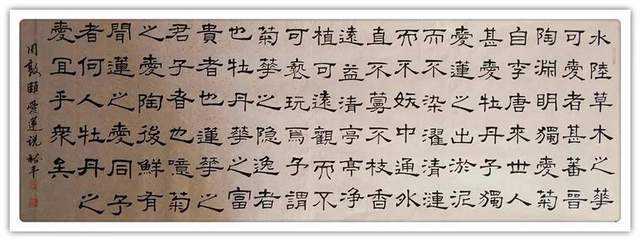 水陸草木之華
可愛者甚蕃晉
陶淵明獨愛菊
自李唐來世人
甚愛牡丹予獨
愛蓮之出淤泥
而不染濯清漣
而不妖中通外
直不蔓不枝香
遠益清亭亭淨
植可遠觀而不
可褻玩焉予謂
菊華之隱逸者
也牡丹華之富
貴者也蓮華之
君子者也噫菊
之愛陶後鮮有
聞蓮之愛同予
者何人牡丹之
愛宜乎衆矣
周敦頤愛蓮说